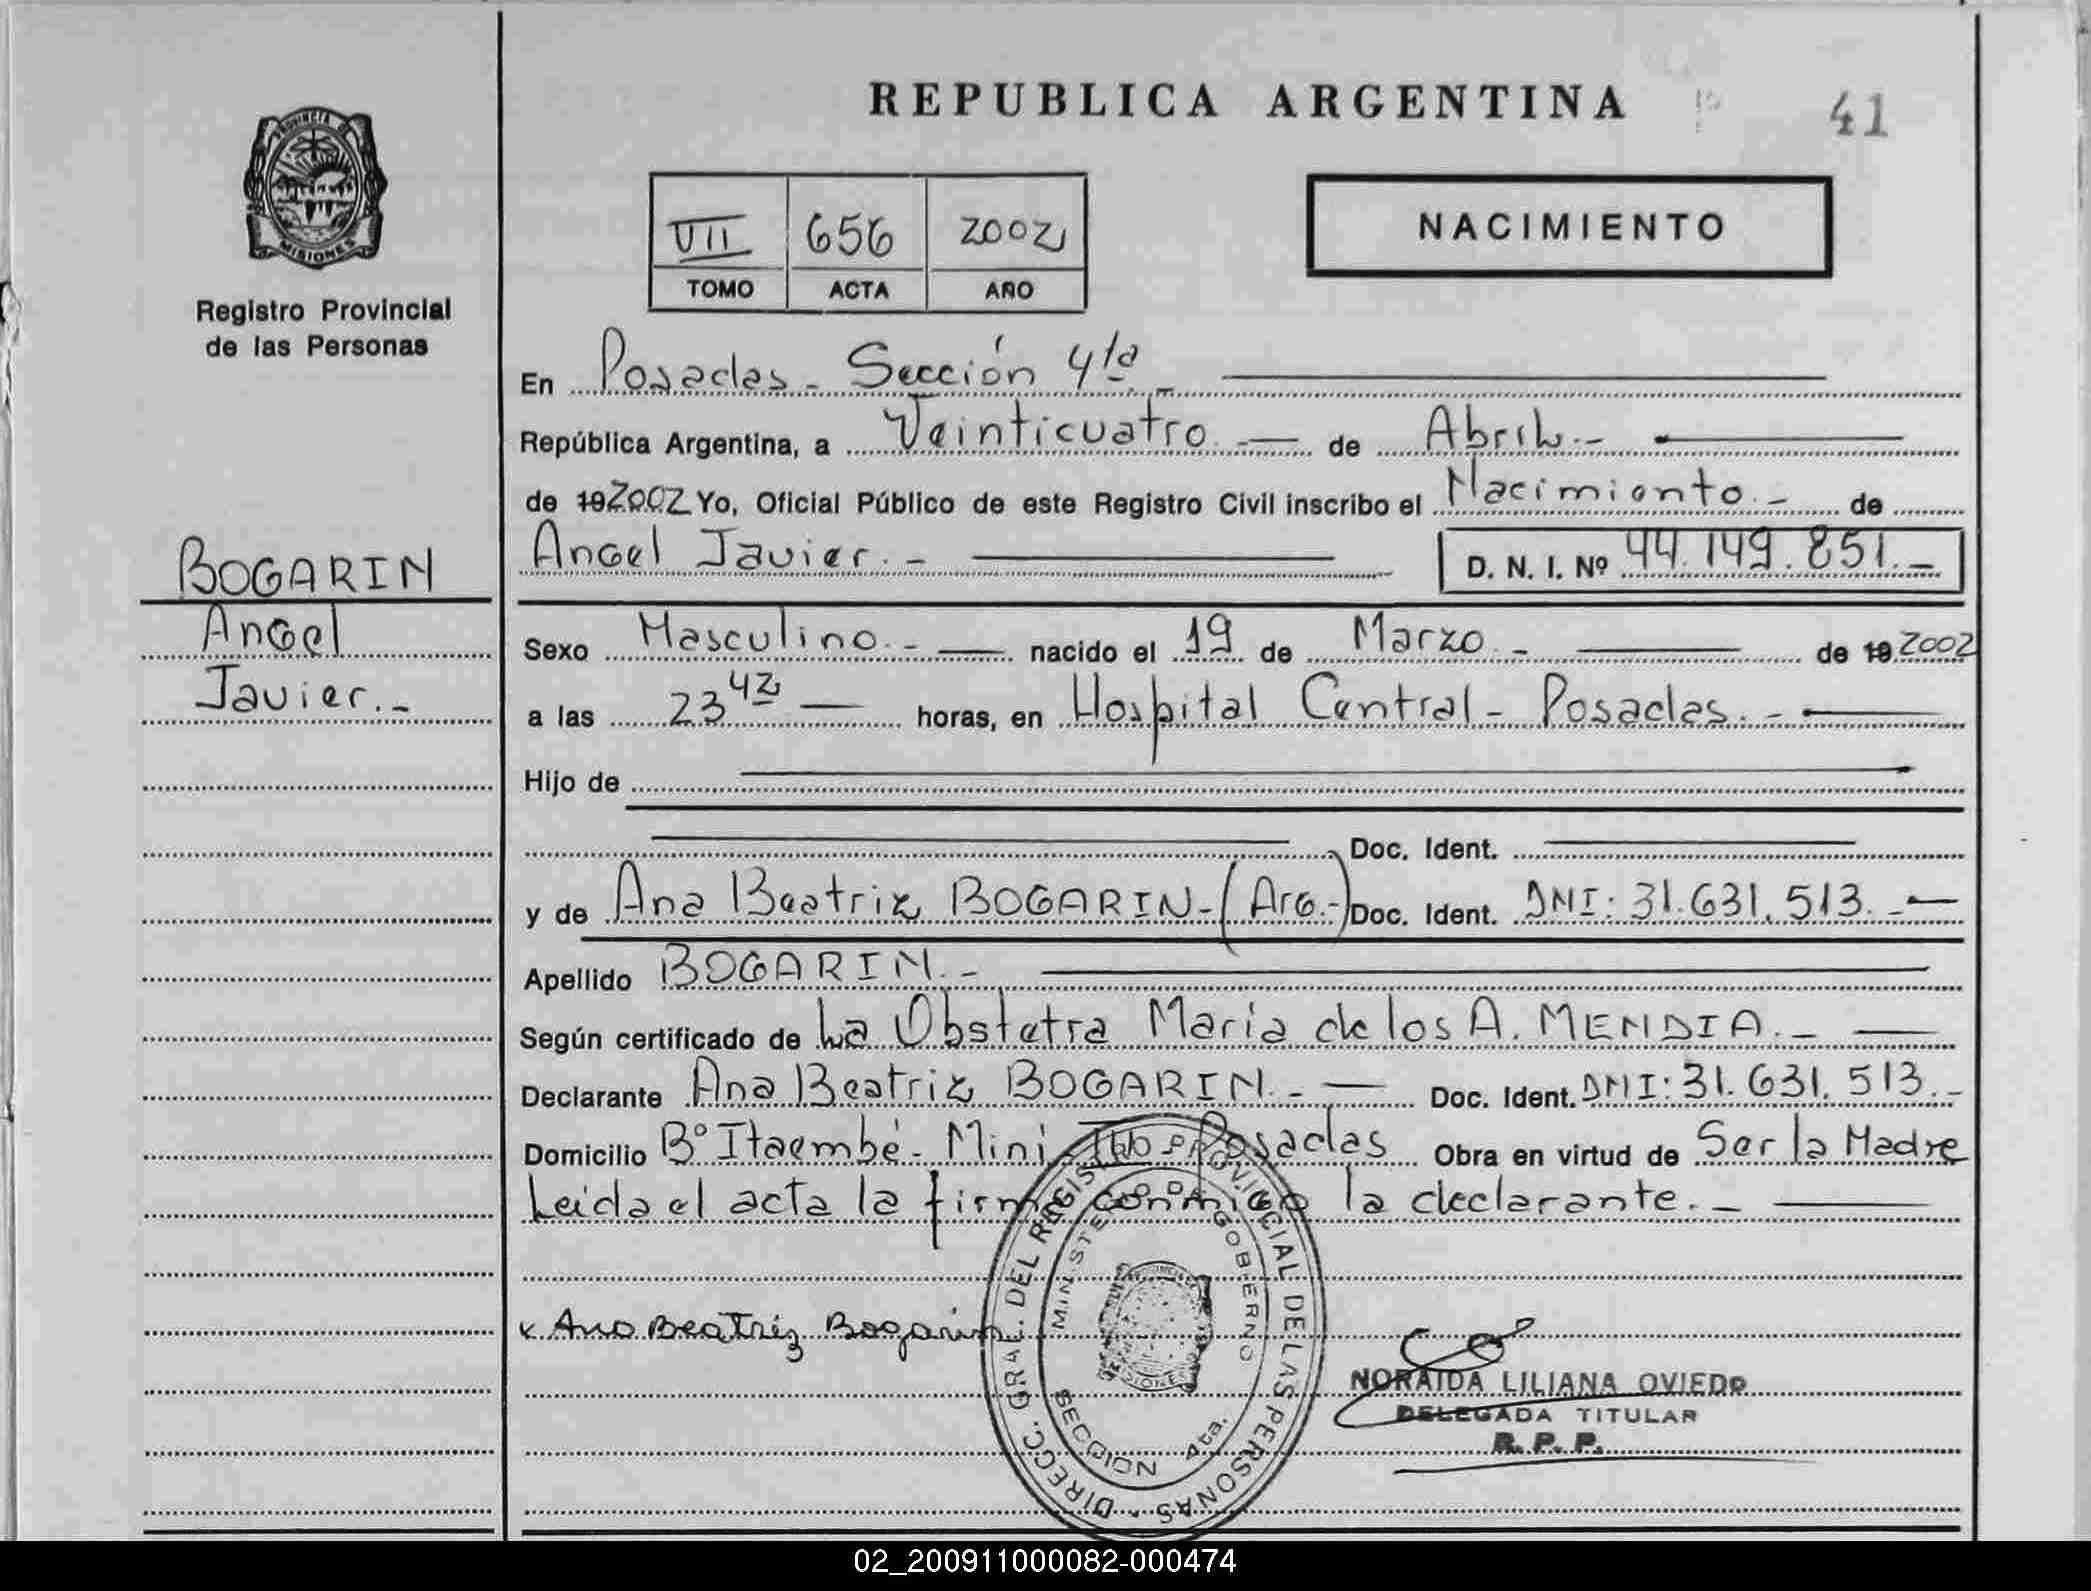 REPUBLICA ARGENTINA
41
PROVINCIA DE
MISIONES
Registro Provincial
de las Personas
VII 656 2002
TOMO ACTA AÑO
NACIMIENTO
En Posadas - Sección 4ta -
República Argentina, a Veinticuatro.- de Abril.-
de 192002 Yo, Oficial Público de este Registro Civil inscribo el Nacimiento.- de
Angel Javier.- D. N. I. Nº 44.149.851.-
BOGARIN
Angel
Javier.-
Sexo Masculino.- nacido el 19 de Marzo.- de 192002
a las 23 42 horas, en Hospital Central - Posadas.-
Hijo de
Doc. Ident.
y de Ana Beatriz BOGARIN-(Arg.-) Doc. Ident. DNI: 31.631.513.-
Apellido BOGARIN.-
Según certificado de La Obstetra Maria de los A. MENDIA.-
Declarante Ana Beatriz BOGARIN.- Doc. Ident. DNI: 31.631.513.-
Domicilio Bº Itaembé - Mini Posadas Obra en virtud de Ser la Madre
Leida el acta la firma conmigo la declarante.-
x Ana Beatriz Bogarin
DIRECC. GRAL. DEL REGISTRO PROVINCIAL DE LAS PERSONAS
MINISTERIO DE GOBIERNO
SECCION 4ta.
NORAIDA LILIANA OVIEDO
DELEGADA TITULAR
R. P. P.
02_200911000082-000474